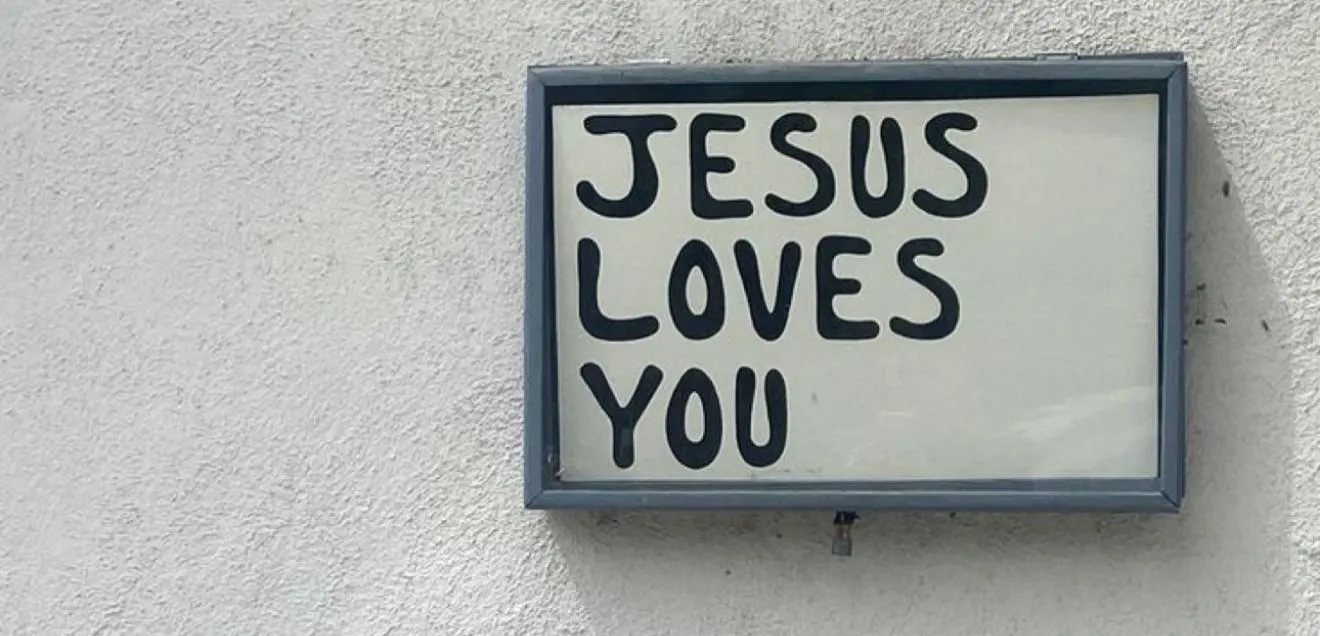 JESUS
LOVES
YOU